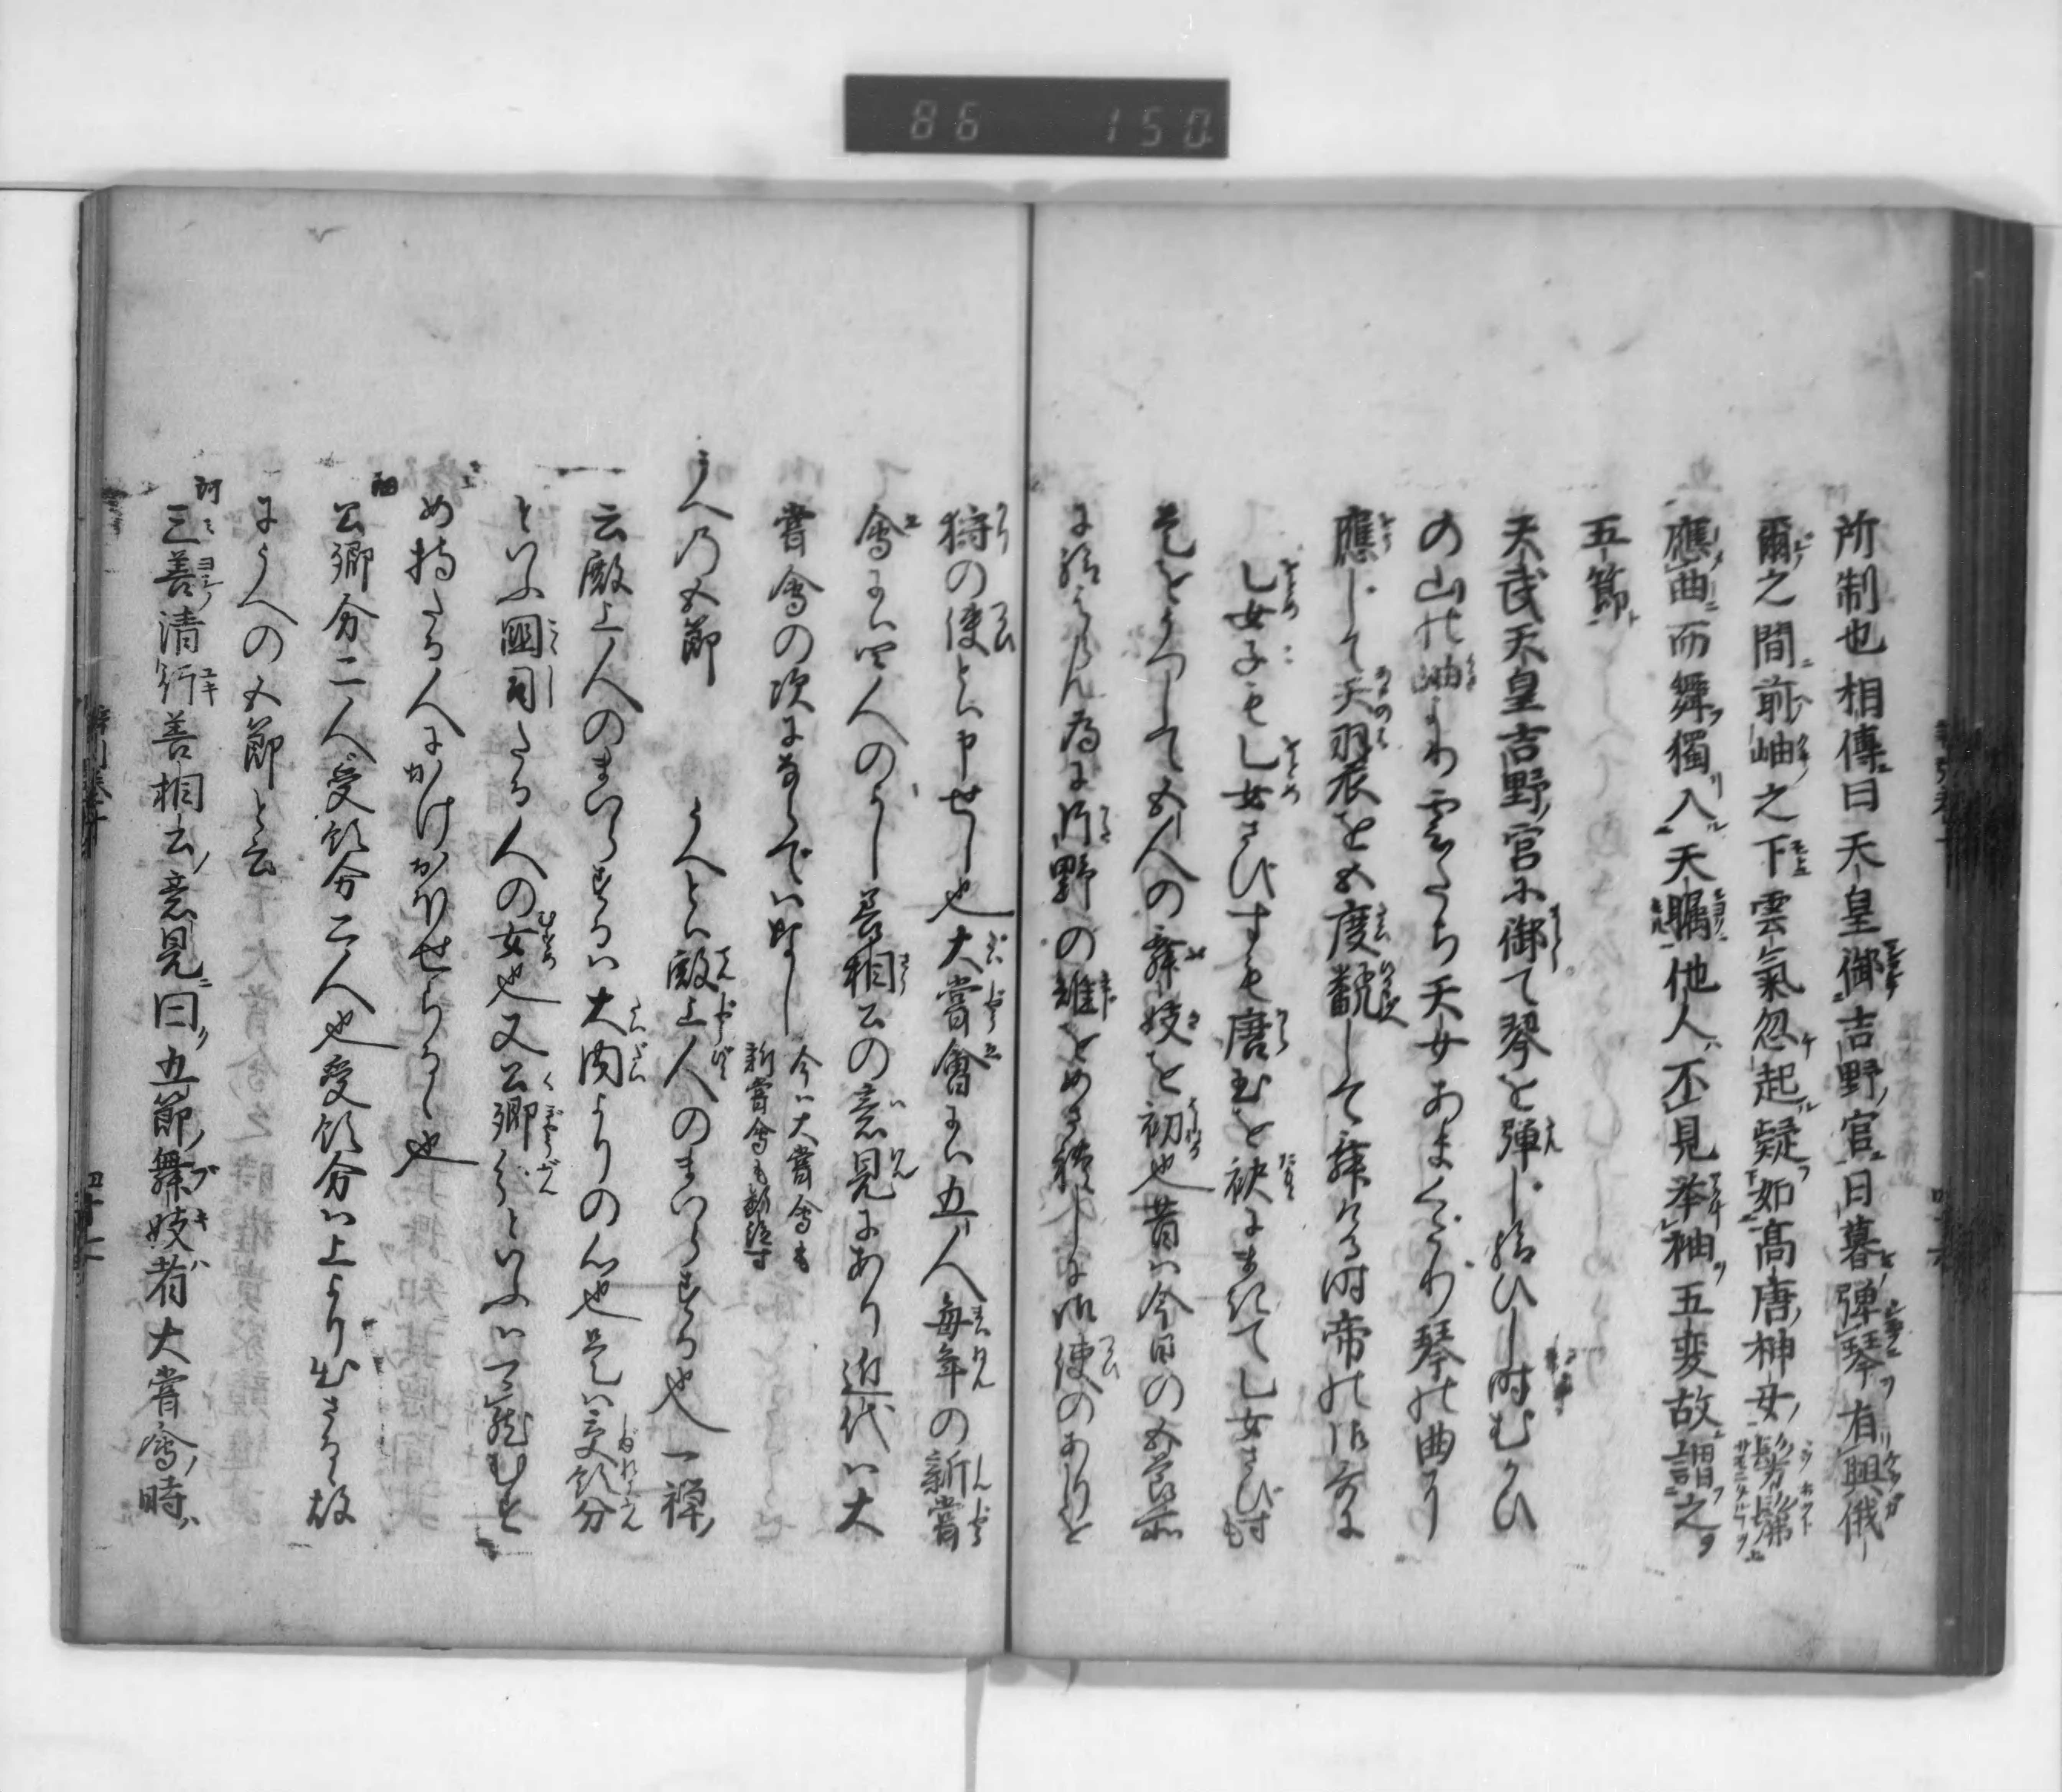 86 150
所制也相傳曰天皇御吉野官日暮彈琴有興俄
爾之間前岫之下雲氣忽起疑如髙唐神女髣髴
應曲而舞獨入天矚他人不見挙袖五変故謂之
五節
天武天皇吉野官に御て琴を弾じ給ひし時むかひ
の山の岫より雲たち天女あまくだり琴の曲に
應じて天羽衣を五度飜して舞ける時帝の御哥に
し女子もし女さびすも唐玉を袂にまきてし女さびすも
是をうつして五人の舞妓を初也昔は今日の五
に給はらん為に片野の雉をめさ れしに御使のありを
狩の使とは申せし也大嘗會には五人毎年の新嘗
會には四人のよし善相公の意見にあり近代は大
嘗會の次にならでは なし 今ハ大嘗會も
新嘗會も断絶す
うへの五節 うへとは殿上人のまいらする也一禅
云殿上人のまいらするは大内よりの心也是は受領分
といふ国司たる人の女也又公卿分といふは
め持たる人にかけおほせらるゝ也
公卿分二人受領分二人也受領分は上より出さるゝ故
にうへの五節と云
三善清行善相云意見曰五節舞妓者大嘗會時